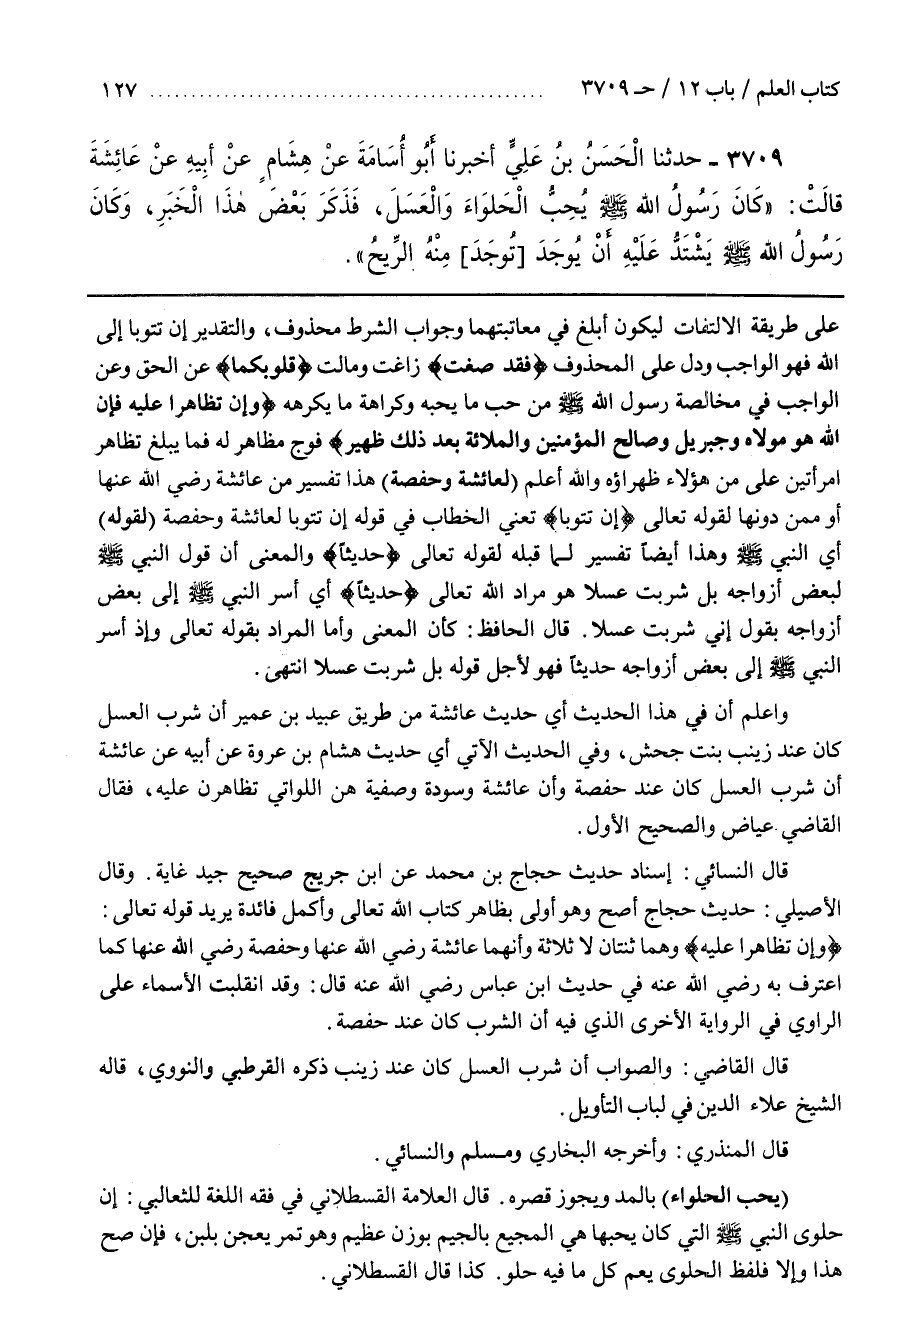 كتاب العلم / باب ١٢ / حـ ٣٧٠٩ ................................................ ١٢٧
٣٧٠٩ ـ حدثنا الْحَسَنُ بنُ عَلِيٍّ أخبرنا أَبُو أُسَامَةَ عنْ هِشَامٍ عنْ أبِيهِ عنْ عَائِشَةَ
قالَتْ: «كَانَ رَسُولُ الله ﷺ يُحِبُّ الْحَلوَاءَ وَالْعَسَلَ، فَذَكَرَ بَعْضَ هٰذَا الْخَبَرِ، وَكَانَ
رَسُولُ الله ﷺ يَشْتَدُّ عَلَيْهِ أَنْ يُوجَدَ [تُوجَدَ] مِنْهُ الرِّيحُ».
على طريقة الالتفات ليكون أبلغ في معاتبتهما وجواب الشرط محذوف، والتقدير إن تتوبا إلى
الله فهو الواجب ودل على المحذوف ﴿فقد صغت﴾ زاغت ومالت ﴿قلوبكما﴾ عن الحق وعن
الواجب في مخالصة رسول الله ﷺ من حب ما يحبه وكراهة ما يكرهه ﴿وإن تظاهرا عليه فإن
الله هو مولاه وجبريل وصالح المؤمنين والملائة بعد ذلك ظهير﴾ فوج مظاهر له فما يبلغ تظاهر
امرأتين على من هؤلاء ظهراؤه والله أعلم (لعائشة وحفصة) هذا تفسير من عائشة رضي الله عنها
أو ممن دونها لقوله تعالى ﴿إن تتوبا﴾ تعني الخطاب في قوله إن تتوبا لعائشة وحفصة (لقوله)
أي النبي ﷺ وهذا أيضاً تفسير لما قبله لقوله تعالى ﴿حديثاً﴾ والمعنى أن قول النبي ﷺ
لبعض أزواجه بل شربت عسلا هو مراد الله تعالى ﴿حديثاً﴾ أي أسر النبي ﷺ إلى بعض
أزواجه بقول إني شربت عسلا. قال الحافظ: كأن المعنى وأما المراد بقوله تعالى وإذ أسر
النبي ﷺ إلى بعض أزواجه حديثاً فهو لأجل قوله بل شربت عسلا انتهىٰ.
واعلم أن في هذا الحديث أي حديث عائشة من طريق عبيد بن عمير أن شرب العسل
كان عند زينب بنت جحش، وفي الحديث الآتي أي حديث هشام بن عروة عن أبيه عن عائشة
أن شرب العسل كان عند حفصة وأن عائشة وسودة وصفية هن اللواتي تظاهرن عليه، فقال
القاضي عياض والصحيح الأول.
قال النسائي: إسناد حديث حجاج بن محمد عن ابن جريج صحيح جيد غاية. وقال
الأصيلي: حديث حجاج أصح وهو أولى بظاهر كتاب الله تعالى وأكمل فائدة يريد قوله تعالى:
﴿وإن تظاهرا عليه﴾ وهما ثنتان لا ثلاثة وأنهما عائشة رضي الله عنها وحفصة رضي الله عنها كما
اعترف به رضي الله عنه في حديث ابن عباس رضي الله عنه قال: وقد انقلبت الأسماء على
الراوي في الرواية الأخرى الذي فيه أن الشرب كان عند حفصة.
قال القاضي: والصواب أن شرب العسل كان عند زينب ذكره القرطبي والنووي، قاله
الشيخ علاء الدين في لباب التأويل.
قال المنذري: وأخرجه البخاري ومسلم والنسائي.
(يحب الحلواء) بالمد ويجوز قصره. قال العلامة القسطلاني في فقه اللغة للثعالبي: إن
حلوى النبي ﷺ التي كان يحبها هي المجيع بالجيم بوزن عظيم وهو تمر يعجن بلبن، فإن صح
هذا وإلا فلفظ الحلوى يعم كل ما فيه حلو. كذا قال القسطلاني.